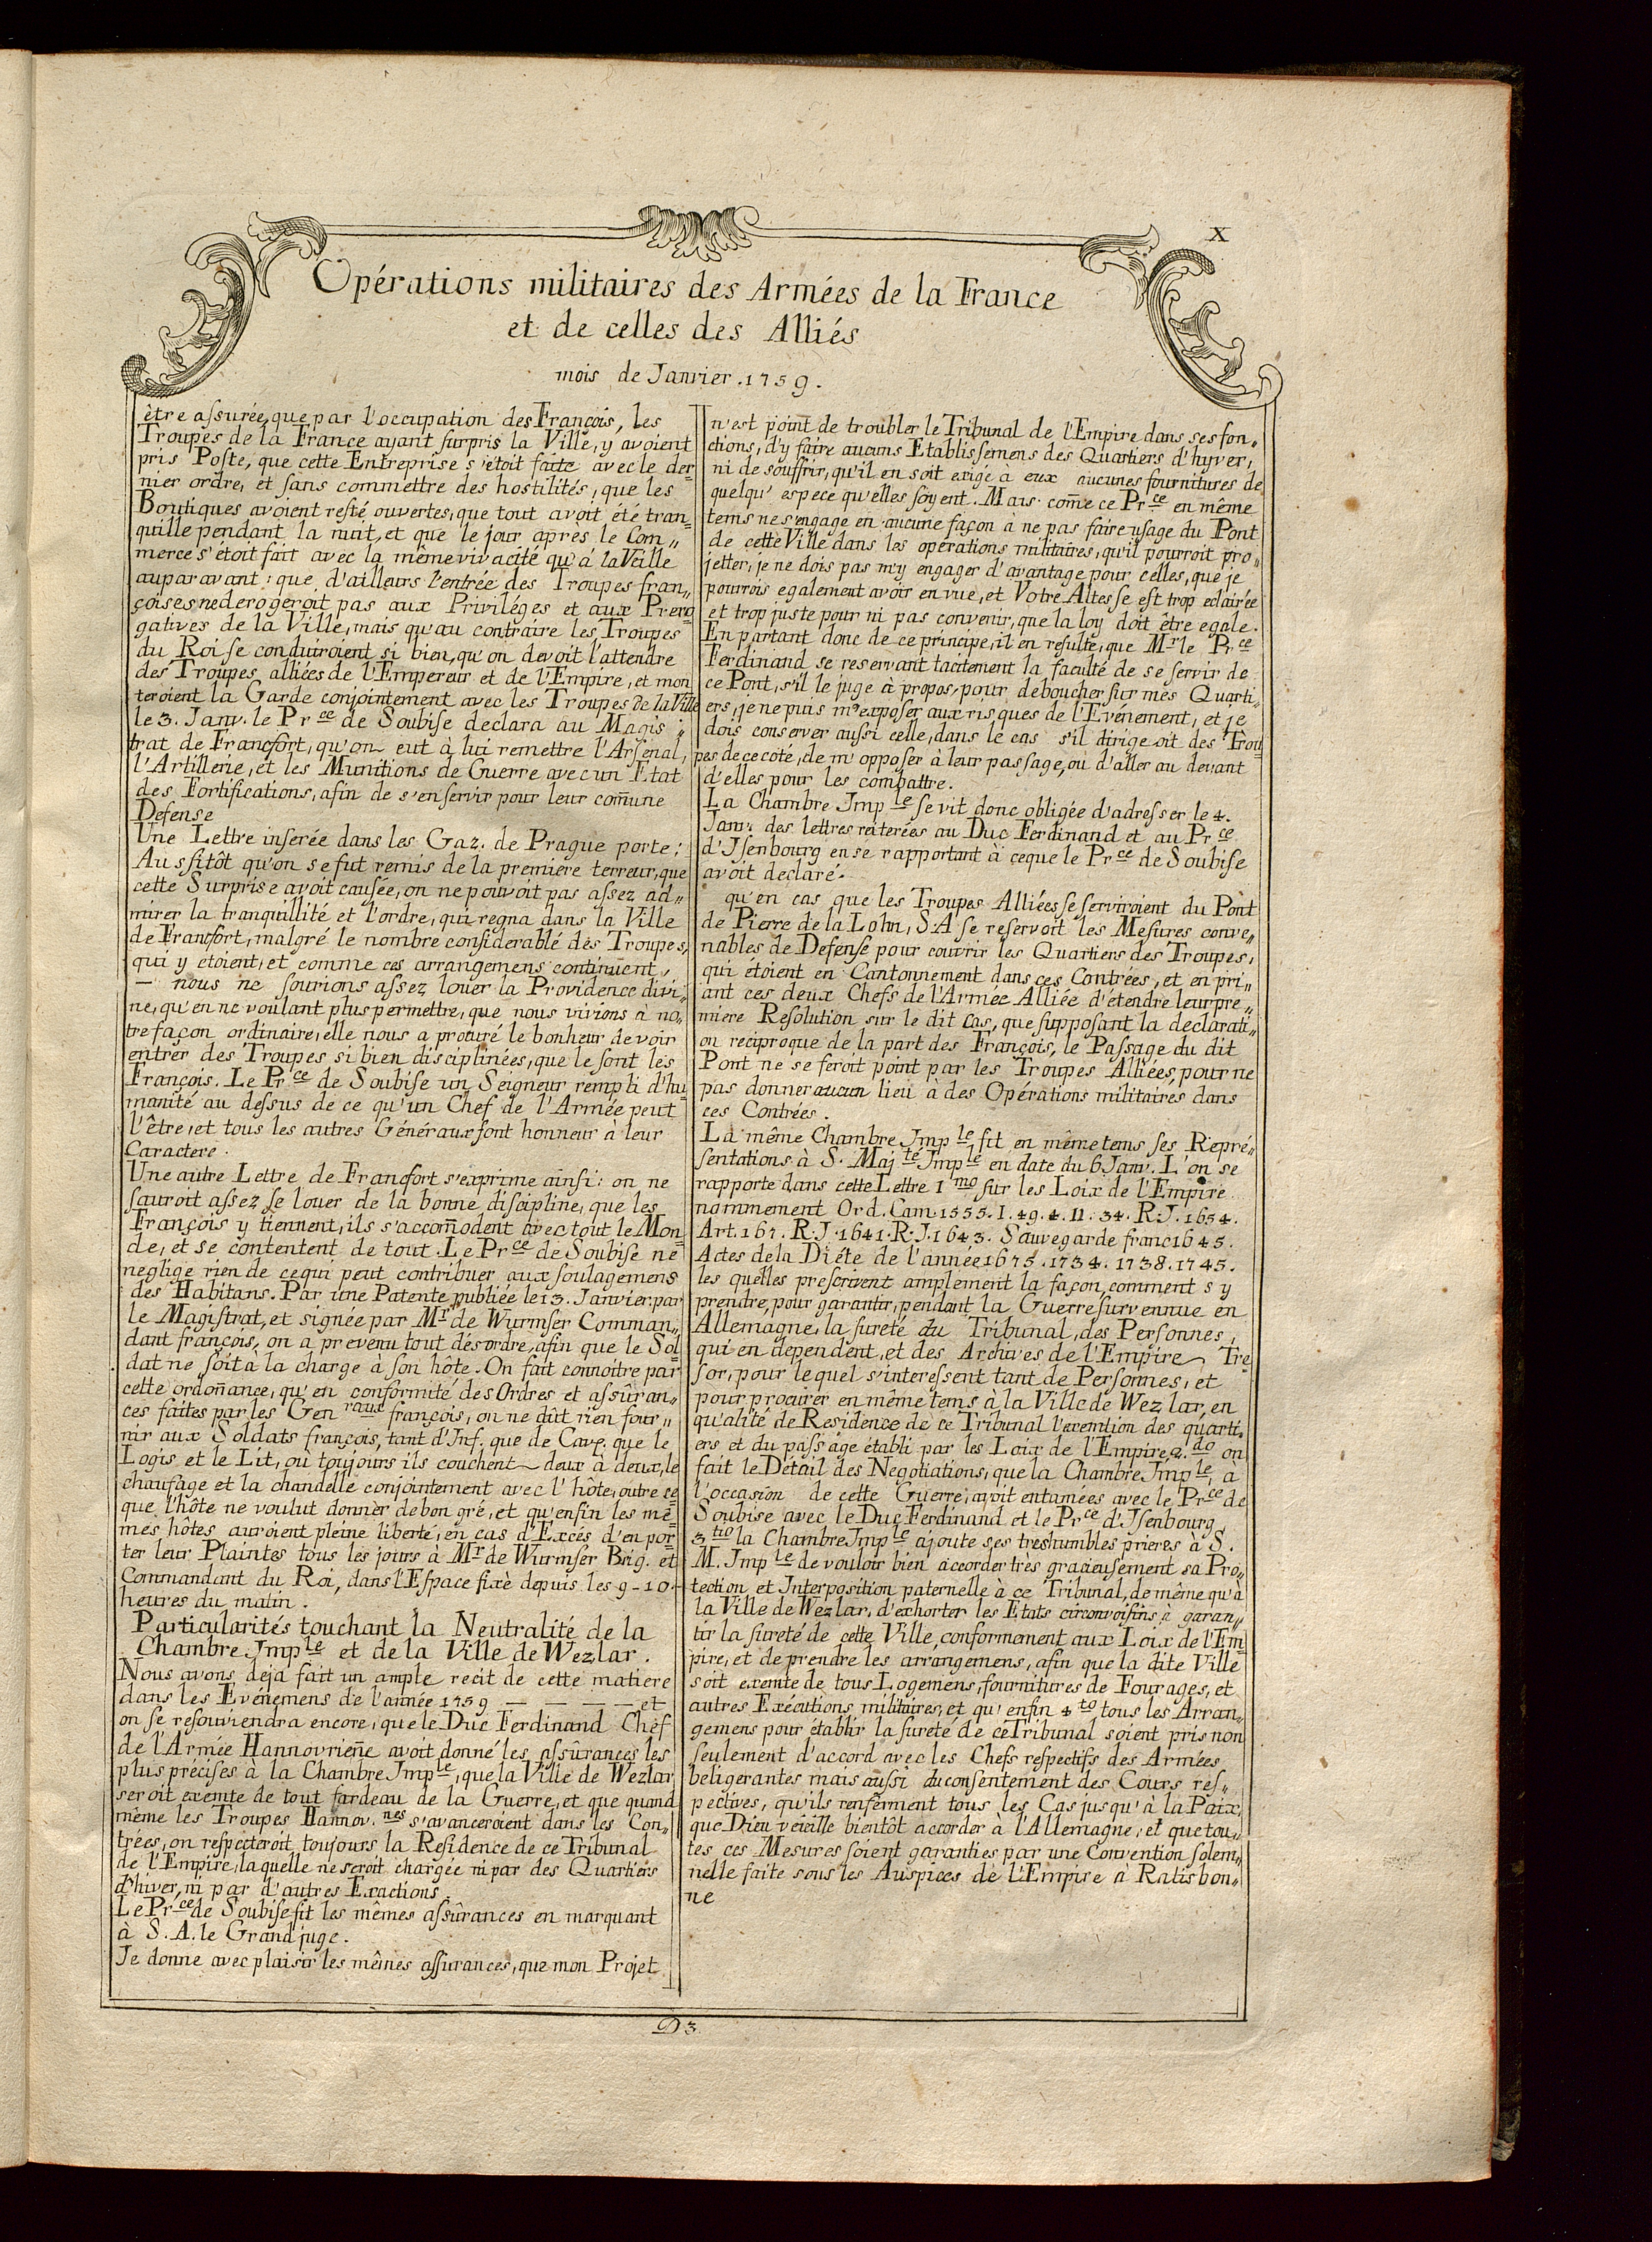 X
Opérations militaires des Armées de la France
et de celles des Alliés
mois de Janvier. 1759.
être assurée, que par l'occupation des François, les
Troupes de la France ayant surpris la Ville, y avoient
pris Poste, que cette Entreprise s'étoit faite avec le der=
nier ordre, et sans commettre des hostilités, que les
Boutiques avoient resté ouvertes, que tout avoit été tran=
quille pendant la nuit, et que le jour après le Com„
merce s'étoit fait avec la même vivacité qu'á la Veille
auparavant: que d'ailleurs l'entrée des Troupes fran„
çoises ne derogeroit pas aux Priviléges et aux Prero=
gatives de la Ville, mais qu'au contraire les Troupes
du Roi se conduiroient si bien, qu'on devoit l'attendre
des Troupes alliées de l'Empereur et de l'Empire, et mon
teroient la Garde conjointement avec les Troupes de la Ville
le 3. Janv. le Pr ce de Soubise declara au Magis„
trat de Francfort, qu'on eut à lui remettre l'Arsenal,
l'Artillerie, et les Munitions de Guerre avec un Etat
des Fortifications, afin de s'en servir pour leur com̄une
Defense
Une Lettre inserée dans les Gaz. de Prague porte:
Aussitôt qu'on se fut remis de la premiere terreur, que
cette Surprise avoit causée, on ne pouvoit pas assez ad„
mirer la tranquillité et l'ordre, qui regna dans la Ville
de Francfort, malgré le nombre considerablé des Troupes,
qui y etoient, et comme ces arrangemens continuent,
— nous ne sourions assez louer la Providence divi„
ne, qu'en ne voulant plus permettre, que nous vivions à no„
tre façon ordinaire, elle nous a procuré le bonheur de voir
entrer des Troupes si bien disciplinées, que le sont les
François. Le Pr ce de Soubise un Seigneur rempli d'hu=
manité au dessus de ce qu'un Chef de l'Armée peut
l'être, et tous les autres Généraux font honneur à leur
Caractere.
Une autre Lettre de Francfort s'exprime ainsi: on ne
sauroit assez se louer de la bonne discipline, que les
François y tiennent, ils s'accom̄odent avec tout le Mon
de, et se contentent de tout. Le Pr ce de Soubise ne
neglige rien de ce qui peut contribuer aux soulagemens
des Habitans. Par une Patente publiée le 13. Janvier par
le Magistrat, et signée par Mr de Wurmser Comman„
dant françois, on a prevenu tout désordre, afin que le Sol=
dat ne soit à la charge à son hôte. On fait connoitre par
cette ordon̄ance, qu'en conformité des Ordres et assûran„
ces faites par les Gen raux françois, on ne dût rien four„
nir aux Soldats françois, tant d'Inf. que de Cav. que le
Logis et le Lit, ou toujours ils couchent deux à deux, le
chaufage et la chandelle conjointement avec l'hôte, outre ce
que l'hôte ne voulut donner de bon gré, et qu'enfin les mê=
mes hôtes auroient pleine liberté, en cas d'Excés d'en por=
ter leur Plaintes tous les jours à Mr de Wurmser Brig. et
Commandant du Roi, dans l'Espace fixè depuis les 9-10.
heures du matin.
Particularités touchant la Neutralité de la
Chambre Imp le et de la Ville de Wezlar.
Nous avons deja fait un ample recit de cette matiere
dans les Evénemens de l'année 1759 — — — — et
on se resouviendra encore, que le Duc Ferdinand Chef
de l'Armée Hannovrien̄e avoit donné les assûrances les
plus précises à la Chambre Imp le, que la Ville de Wezlar
seroit exemte de tout fardeau de la Guerre, et que quand
même les Troupes Hannov. nes s'avanceroient dans les Con„
trées, on respecteroit toujours la Residence de ce Tribunal
de l'Empire, la quelle ne seroit chargée ni par des Quartiers
d'hiver, ni par d'autres Exactions.
Le Pr ce de Soubise fit les mêmes assûrances en marquant
à S. A. le Grand juge.
Je donne avec plaisir les mêmes assurances, que mon Projet
n'est point de troubler le Tribunal de l'Empire dans ses fon„
ctions, d'y faire aucuns Etablissemens des Quartiers d'hyver,
ni de souffrir, qu'il en soit exigé à eux aucunes fournitures de
quelqu' espece qu'elles soyent. Mais com̄e ce Pr ce en même
tems ne s'engage en aucune façon à ne pas faire usage du Pont
de cette Ville dans les opérations militaires, qu'il pourroit pro„
jetter, je ne dois pas m'y engager d'avantage pour celles, que je
pourrois egalement avoir en vue, et Votre Altesse est trop eclairée
et trop juste pour ni pas convenir, que la loy doit être egale.
En partant donc de ce principe, il en resulte, que Mr le Pr ce
Ferdinand se reservant tacitement la faculté de se servir de
ce Pont, s'il le juge à propos, pour deboucher sur mes Quarti„
ers, je ne puis m'exposer aux risques de l'Evénement, et je
dois conserver aussi celle, dans le cas s'il dirigeoit des Trou=
pes de ce coté, de m'opposer à leur passage, ou d'aller au devant
d'elles pour les combattre.
La Chambre Imp le se vit donc obligée d'adresser le 4.
Janv. des lettres reiterées au Duc Ferdinand et au Pr ce
d'Isenbourg en se rapportant à ceque le Pr ce de Soubise
avoit declaré.
qu'en cas que les Troupes Alliées se serviroient du Pont
de Pierre de la Lohn, S.A se reservoit les Mesures conve„
nables de Defense pour couvrir les Quartiers des Troupes,
qui étoient en Cantonnement dans ces Contrées, et en pri„
ant ces deux Chefs de l'Armée Alliée d'étendre leur pre„
miere Resolution sur le dit cas, que supposant la declarati„
on reciproque de la part des François, le Passage du dit
Pont ne se feroit point par les Troupes Alliées, pour ne
pas donner aucun lieu à des Opérations militaires dans
ces Contrées.
La même Chambre Imp le fit en même tems ses Repré„
sentations à S. Maj té Imp le en date du 6 Janv. L'on se
rapporte dans cette Lettre 1 mo sur les Loix de l'Empire
nommement Ord. Cam. 1555. I. 49. 4. II. 34. R.J. 1654.
Art. 167. R.J. 1641. R.J. 1643. Sauvegarde franc 1645.
Actes de la Diéte de l'année 1675. 1734. 1738. 1745.
les quelles prescrivent amplement la façon, comment s y
prendre, pour garantir, pendant la Guerre survennue en
Allemagne, la sureté du Tribunal, des Personnes,
qui en dependent, et des Archives de l'Empire Tre=
sor, pour lequel s'interessent tant de Personnes, et
pour procurer en même tems à la Ville de Wezlar, en
qu'alité de Residence de ce Tribunal l'exemtion des quarti„
ers et du passage établi par les Loix de l'Empire, 2. do on
fait le Détail des Negotiations, que la Chambre Imp le, à
l'occasion de cette Guerre, avoit entamées avec le Pr ce de
Soubise avec le Duc Ferdinand et le Pr ce d'Isenbourg
3 tio la Chambre Imp le ajoute ses tres humbles prieres à S.
M. Imp le de vouloir bien accorder très gracieusement sa Pro„
tection et Interposition paternelle à ce Tribunal, de même qu'à
la Ville de Wezlar, d'exhorter les Etats circonvoisins à garan„
tir la sureté de cette Ville, conformement aux Loix de l'Em=
pire, et de prendre les arrangemens, afin que la dite Ville
soit exemte de tous Logemens, fournitures de Fourages, et
autres Exécutions militaires, et qu'enfin 4 to tous les Arran„
gemens pour établir la sureté de ce Tribunal soient pris non
seulement d'accord avec les Chefs respectifs des Armées
beligerantes mais aussi du consentement des Cours res„
pectives, qu'ils renferment tous les Cas jusqu'à la Paix,
que Dieu veieille bientôt accorder à l'Allemagne, et que tou„
tes ces Mesures soient garanties par une Convention solem„
nelle faite sous les Auspices de l'Empire à Ratisbon„
ne
D3